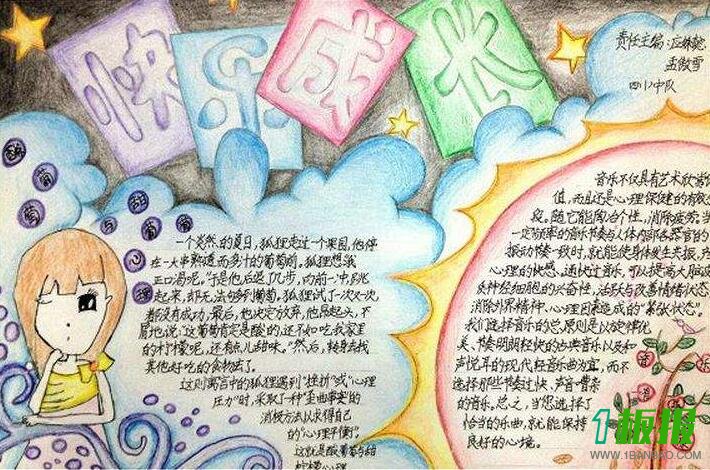 快乐成长
责任主编:汪姝懿
孟傲雪
四(1)中队
酸葡萄甜柠檬心理
一个炎热的夏日,狐狸走过一个果园,他停
在一大串熟透而多汁的葡萄前。狐狸想:我
正口渴呢。"于是他后退了几步,向前一冲,跳
起来,却无法勾到葡萄。狐狸试了一次又一次
都没有成功。最后,他决定放弃,他昂起头,不
屑地说:"这葡萄肯定是酸的,还不如吃我家里
的柠檬呢,还有点儿甜味。"然后,转身去找
其他好吃的食物去了。
这则寓言中的狐狸遇到"挫折"或"心理
压力"时,采取了一种"歪曲事实"的
消极方法以求得自己
的"心理平衡"。
这就是酸葡萄与甜
柠檬心理
音乐不仅具有艺术欣赏价
值,而且还是心理保健的有效
疲。随它能陶冶个性,消除疲劳;当
一定频率的音乐节奏与人体内部各器官的
振动节奏一致时,就能使身体发生共振,产
心理的快感。通快过音乐,可以提高大脑皮
及神经细胞的兴奋性,活跃与改善情绪状态
消除外界精神、心理因素造成的"紧张状态"。
我们选择音乐的总原则是以旋律优
美、节奏明朗轻快的古典音乐以及和
声悦耳的现代轻音乐曲为宜,而不
选择那些节奏过快、声音
的音乐。总之,当您选择了
恰当的乐曲,就能保持
良好的心境。
1板报
WWW.1BANBAO.COM